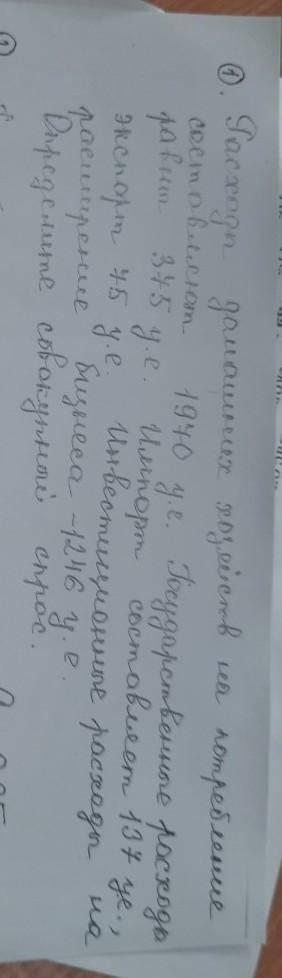 ①. Расходы домашних хозяйств на потребление
составляют 1940 у.е. Государственные расходы
равны 375 у.е. Импорт составляет 137 у.е.,
экспорт 75 у.е. Инвестиционные расходы на
расширение бизнеса - 1246 у.е.
Определите совокупный спрос.